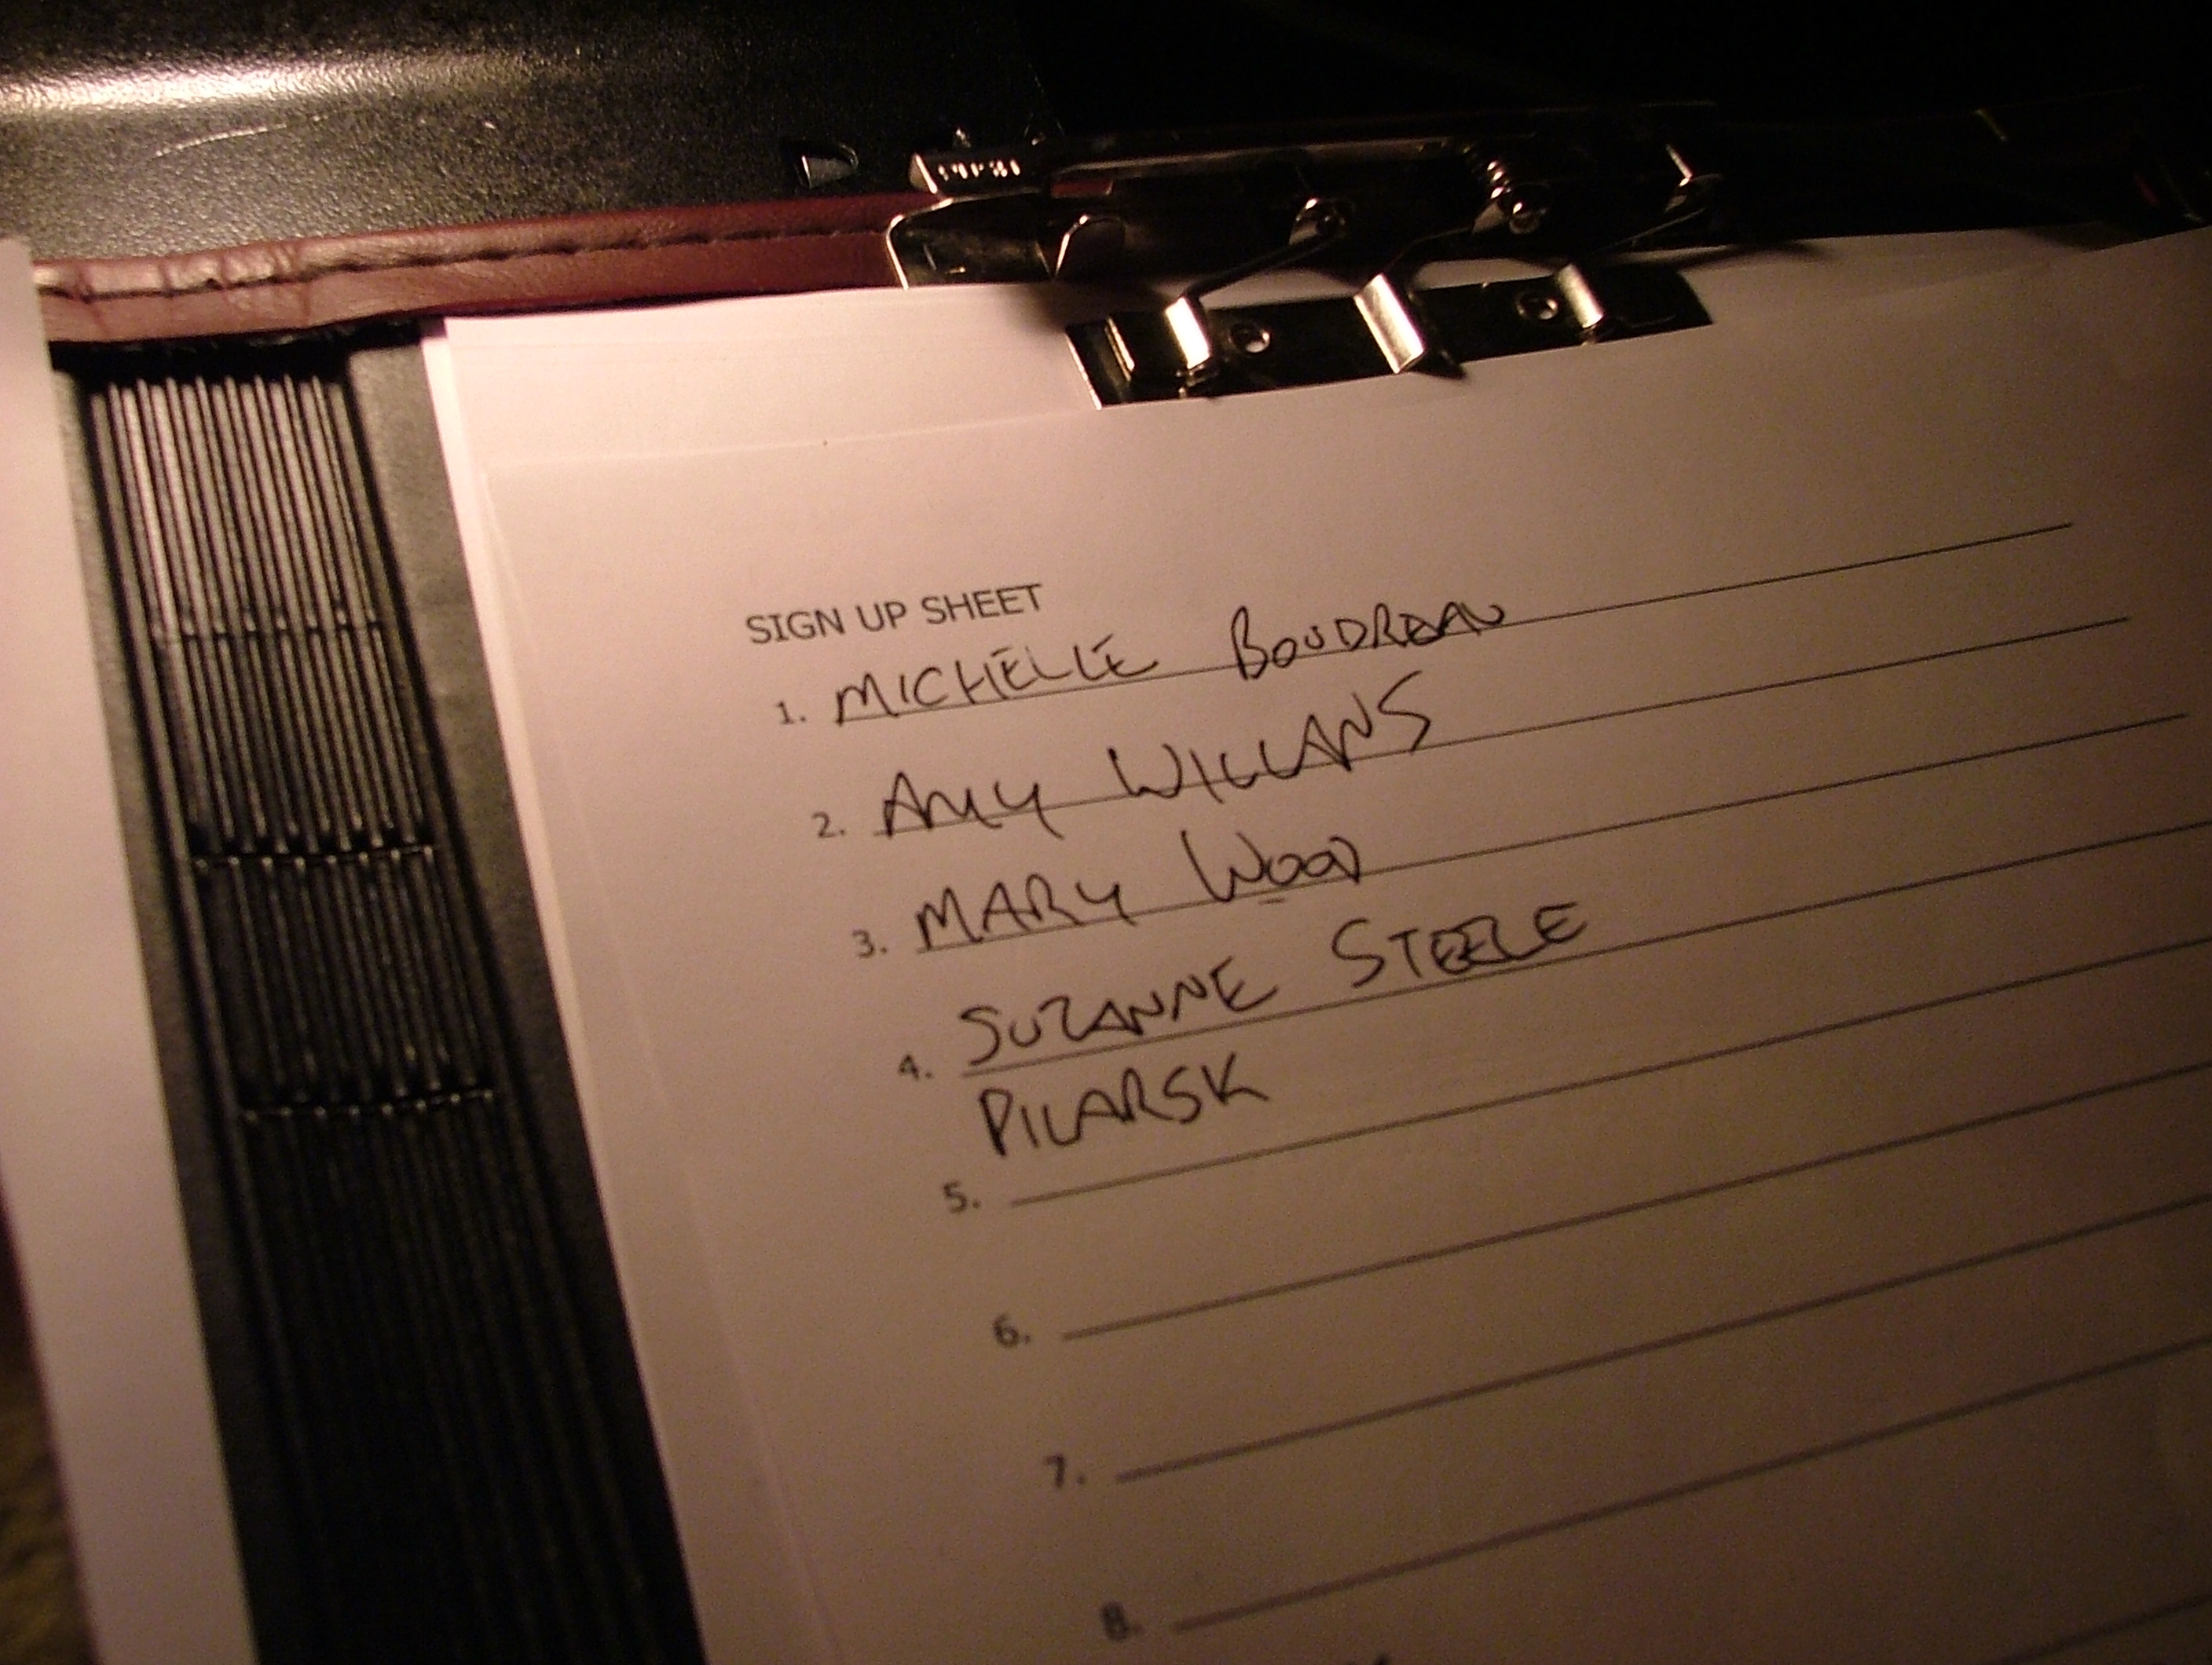 SIGN UP SHEET
1. MICHELLE BOUDREAU
2. AMY WILLANS
3. MARY WOOD
4. SUZANNE STEELE
PILARSK
5.
6.
7.
8.